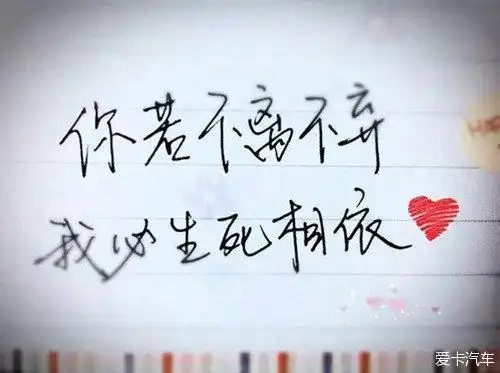 你若不离不弃
我必生死相依
爱卡汽车